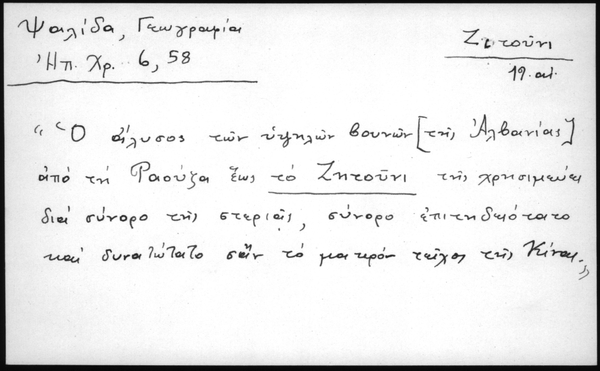 Ψαλίδα, Γεωγραφία
Ἠπ. Χρ. 6, 58
Ζιτούνι
19. αι.
"Ὁ ἅλυσος τῶν ὑψηλῶν βουνῶν [τῆς Ἀλβανίας]
ἀπό τή Ραούζα ἕως τό Ζητοῦνι τῆς χρησιμεύει
διά σύνορο τῆς στεριᾶς, σύνορο ἐπιτηδειότατο
καί δυνατώτατο σάν τό μακρόν τεῖχος τῆς Κίνας."